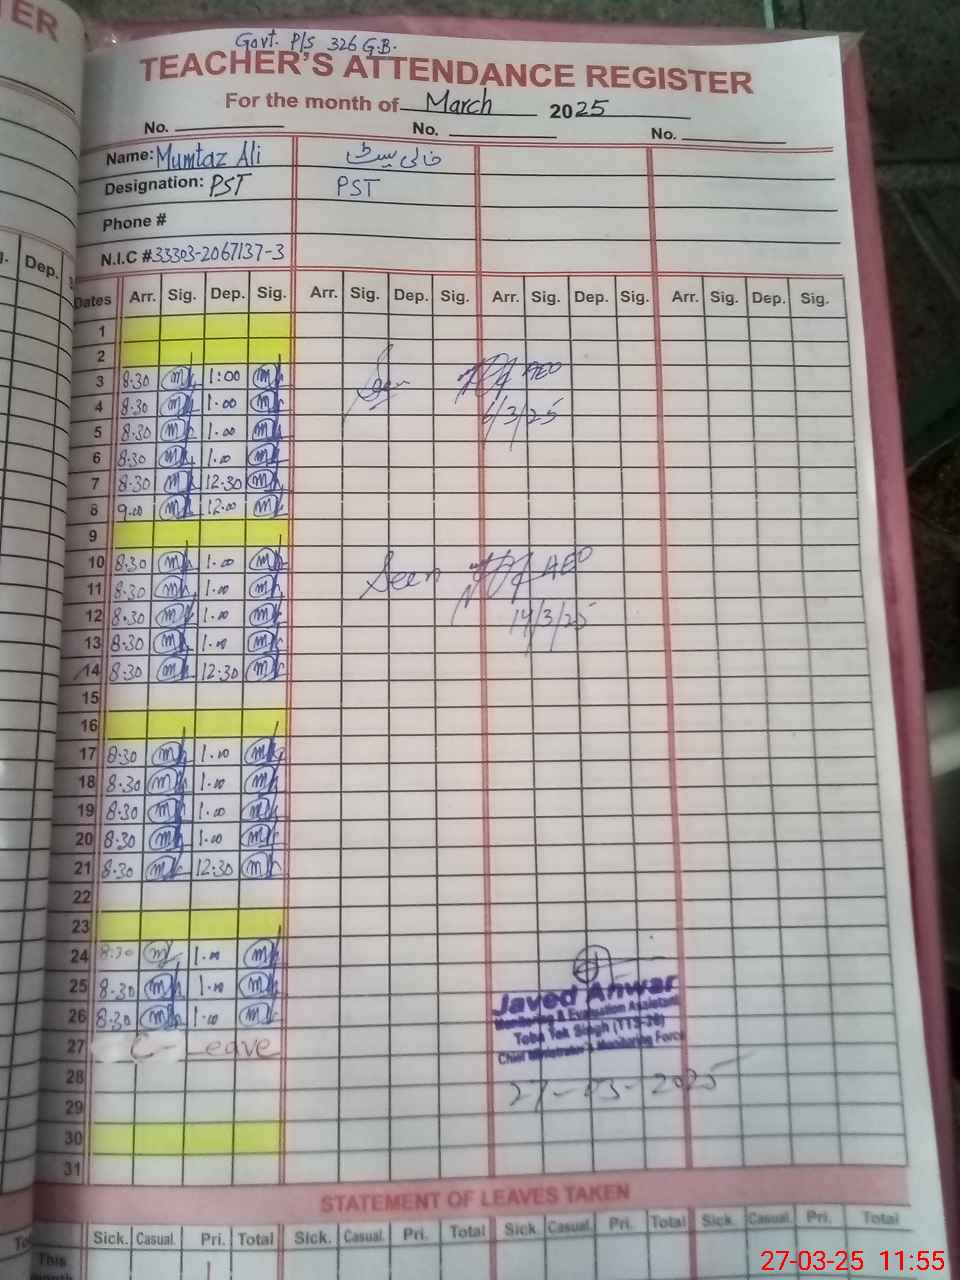 ER
Govt. P/S 326 G.B.
TEACHER'S ATTENDANCE REGISTER
For the month of March 2025
No. No. No.
Name: Mumtaz Ali خالی سیٹ
Designation: PST PST
Phone #
N.I.C # 33303-2067137-3
Dep.
Dates Arr. Sig. Dep. Sig. Arr. Sig. Dep. Sig. Arr. Sig. Dep. Sig. Arr. Sig. Dep. Sig.
1
2
3 8.30 1:00 Seen AEO
4 8.30 1.00 6/3/25
5 8.30 1.00
6 8.30 1.00
7 8.30 12.30
8 9.00 12.00
9
10 8.30 1.00 Seen AEO
11 8.30 1.00
12 8.30 1.00 14/3/25
13 8.30 1.00
14 8.30 12.30
15
16
17 8.30 1.00
18 8.30 1.00
19 8.30 1.00
20 8.30 1.00
21 8.30 12.30
22
23
24 8.30 1.00
25 8.30 1.00 Javed Anwar
26 8.30 1.00 Monitoring & Evaluation Assistant
Toba Tek Singh (TTS-26)
27 C-Leave Chief Minister's Monitoring Force
28 27-03-2025
29
30
31
STATEMENT OF LEAVES TAKEN
Sick. Casual. Pri. Total Sick. Casual. Pri. Total Sick. Casual. Pri. Total Sick. Casual. Pri. Total
This
month
27-03-25 11:55